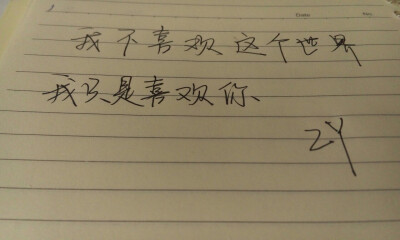 我不喜欢这个世界
我只是喜欢你
ZY